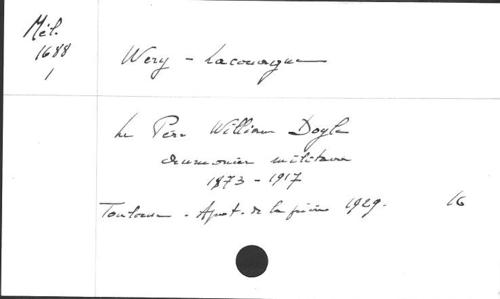 Mél.
1688
1
Wery - Lacouague
Le Père William Doyle
aumonier militaire
1873 - 1917
Toulouse - Apost. de la prière 1929. 16